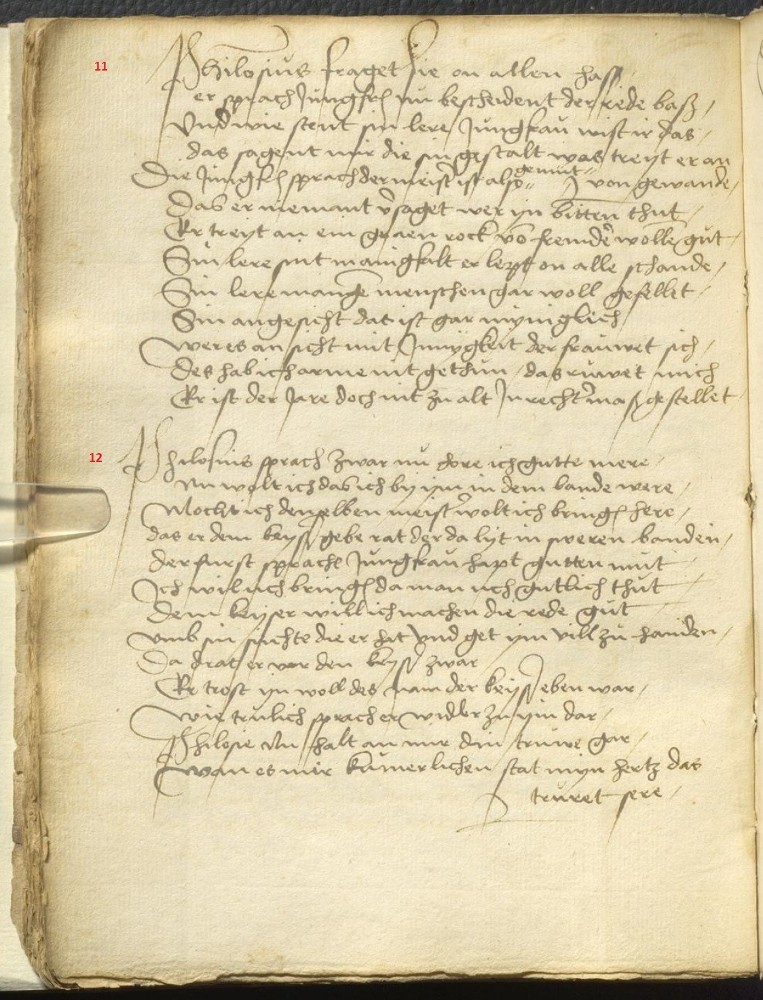 11
Philosius fraget sie on allen hass
er sprach Jungfr nu bescheident der rede baß /
Vnd wie stent sin lere Jungfrau wist ir das /
das sagent mir die sin gestalt was treyt er an
gemut
Die Jungfr sprach der meist ist also von gewande /
Das er niemant vsaget wer yn bitten thut /
Er treyt an ein graen rock vo fremde wolle gut /
Sin lere sint manigfalt er lept on alle schande /
Sin lere mange menschen gar woll gefellet /
Sin angesicht das ist gar mynniglich
wer es an sicht mit Innigkeit der frauwet sich /
des hab ich arme nit gethun / das ruwet mich
Er ist der Jare doch nit zu alt In recht mass gestellet
12
Philosius sprach zwar nu hore ich gutte mere /
Nu wolt ich das ich by ym in dem lande were /
Mocht ich denselben meist wolt ich bring here /
das er dem keyss gebe rat der da lyt in sweren banden /
der furst sprach Jungfrau hapt gutten mut
Ich wil uch bring da man uch gutlich thut
dem keyser will ich machen die rede gut
vmb sin suchte die er hat vnd get ym vill zu handen /
Da drat er vor den keyss zwar
Er trost yn woll des nam der keyss eben war /
wie trulich sprach er widder zu ym dar /
Philosie nu halt an mir din truwe gar /
wan es mir kumerlichen stat myn hertz das
truret sere /